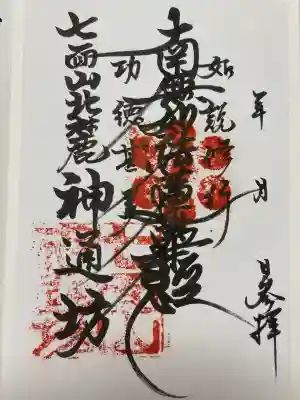 年 月 日参拝
如説修行
南無妙法蓮華経
功徳甚多
七面山北麓 神通坊